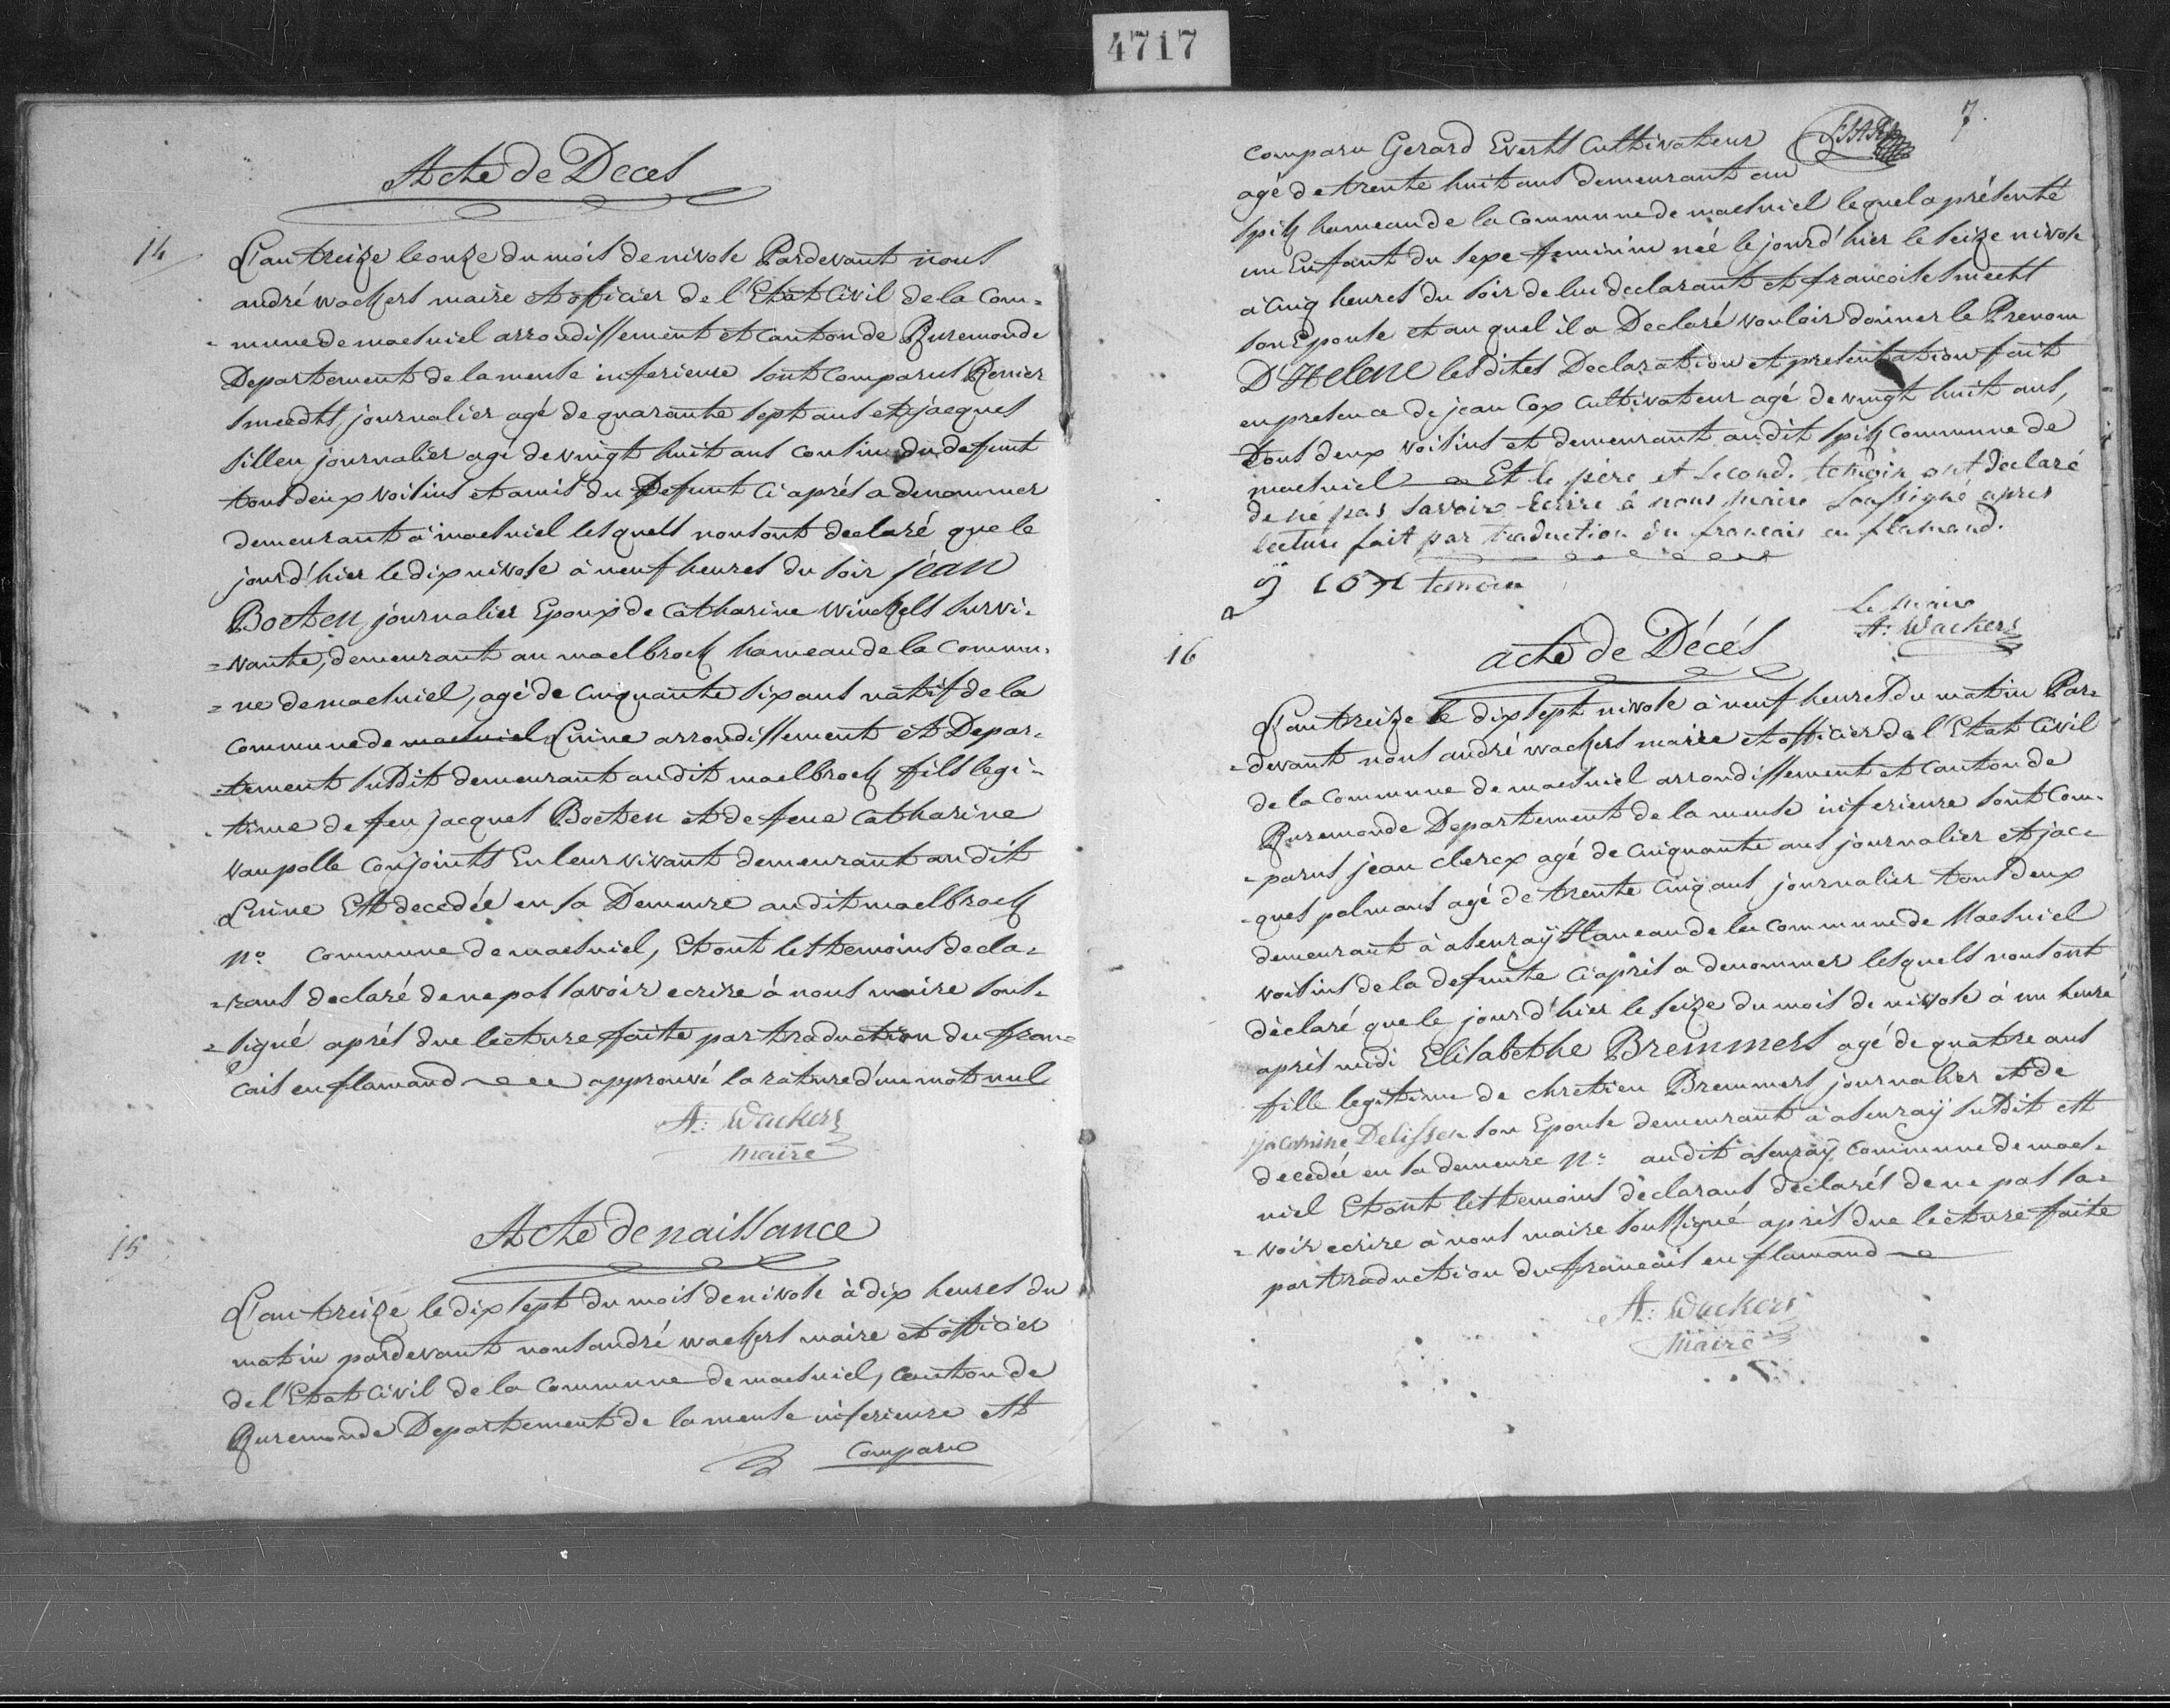 4717
Acte de Deces
14
L'an treize le onze du mois de nivose Pardevant nous
andré wackers maire et officier de l'Etat Civil de la Com=
=mune de maesniel arrondissement et Canton de Ruremonde
Departement de la meuse inferieure sont Comparus Renier
smeedts, journalier agé de quarante sept ans et jacques
sillen journalier agé de vingt huit ans cousin du defunt
tous deux voisins et amis du Defunt ci après a denommer
demeurant à maesniel lesquels nous ont declaré que le
jour d'hier le dix nivose à neuf heures du soir jean
Boeten journalier Epoux de Catharine winckels survi=
=vante, demeurant au maelbroeck hameau de la Commu=
=ne de maesniel, agé de cinquante six ans natif de la
Commune de maesniel Linne arrondissement et Depar=
=tement susdit demeurant audit maelbroeck fils legi=
=time de feu jacques Boeten et de feue Catharine
vanpolle Conjoints En leur vivant demeurant au dit
Linne Est decedée en sa Demeure au dit maelbroeck
No Commune de maesniel, Et ont les temoins decla=
=rans declaré de ne pas savoir ecrire à nous maire sous=
=signé aprés due lecture faite par traduction du fran=
cais en flamand approuvé la rature d'un mot nul
A: Wackers
maire
15
Acte de naissance
L'an treize le dix sept du mois de nivose à dix heures du
matin pardevant nous andré wackers maire et officier
de l'Etat Civil de la Commune de maesniel, Canton de
Ruremonde Departement de la meuse inferieure est
Comparu
7
comparu Gerard Everts Cultivateur
agé de trente huit ans demeurant au
spik hameau de la Commune de maesniel lequel a présenté
un Enfant du sexe feminin née le jour d'hier le seize nivose
à cinq heures du soir de lui declarant et francoise smeets
son Epouse et au quel il a Declaré vouloir donner le Prenom
D'Helene lesdites Declaration et presentation fait
en presence de jean Cox Cultivateur agé de vingt huit ans,
Tous deux voisins et demeurant au dit spik Commune de
maesniel Et le père et second temoin ont declaré
de ne pas savoir Ecrire à nous maire soussigné apres
lecture fait par traduction du francais en flamand.
J Cox temoin
Le maire
A: Wackers
16
acte de Décés
L'an treize le dix sept nivose à neuf heures Du matin Par=
=devant nous andré wackers maire et officier de l'Etat Civil
de la Commune de maesniel arrondissement et Canton de
Ruremonde Departement de la meuse inferieure sont Com=
=parus jean clercx agé de cinquante ans journalier et jac=
=ques palmans agé de trente cinq ans journalier tous deux
demeurant à asenraÿ Hameau de la Commune de Maesniel
voisins de la defunte ci après a denommer lesquels nous ont
déclaré que le jour d'hier le seize du mois de nivose à un heure
après midi Elisabethe Bremmers agé de quatre ans
fille legitime de chretien Bremmers journalier et de
jacomine Delissen son Epouse demeurant à asenraÿ susdit est
decedée en sa demeure No au dit asenraÿ Commune de maes=
niel Et ont les temoins déclarans déclarés de ne pas sa=
=voir ecrire à nous maire soussigné après due lecture faite
par traduction du français en flamand
A: Wackers
maire